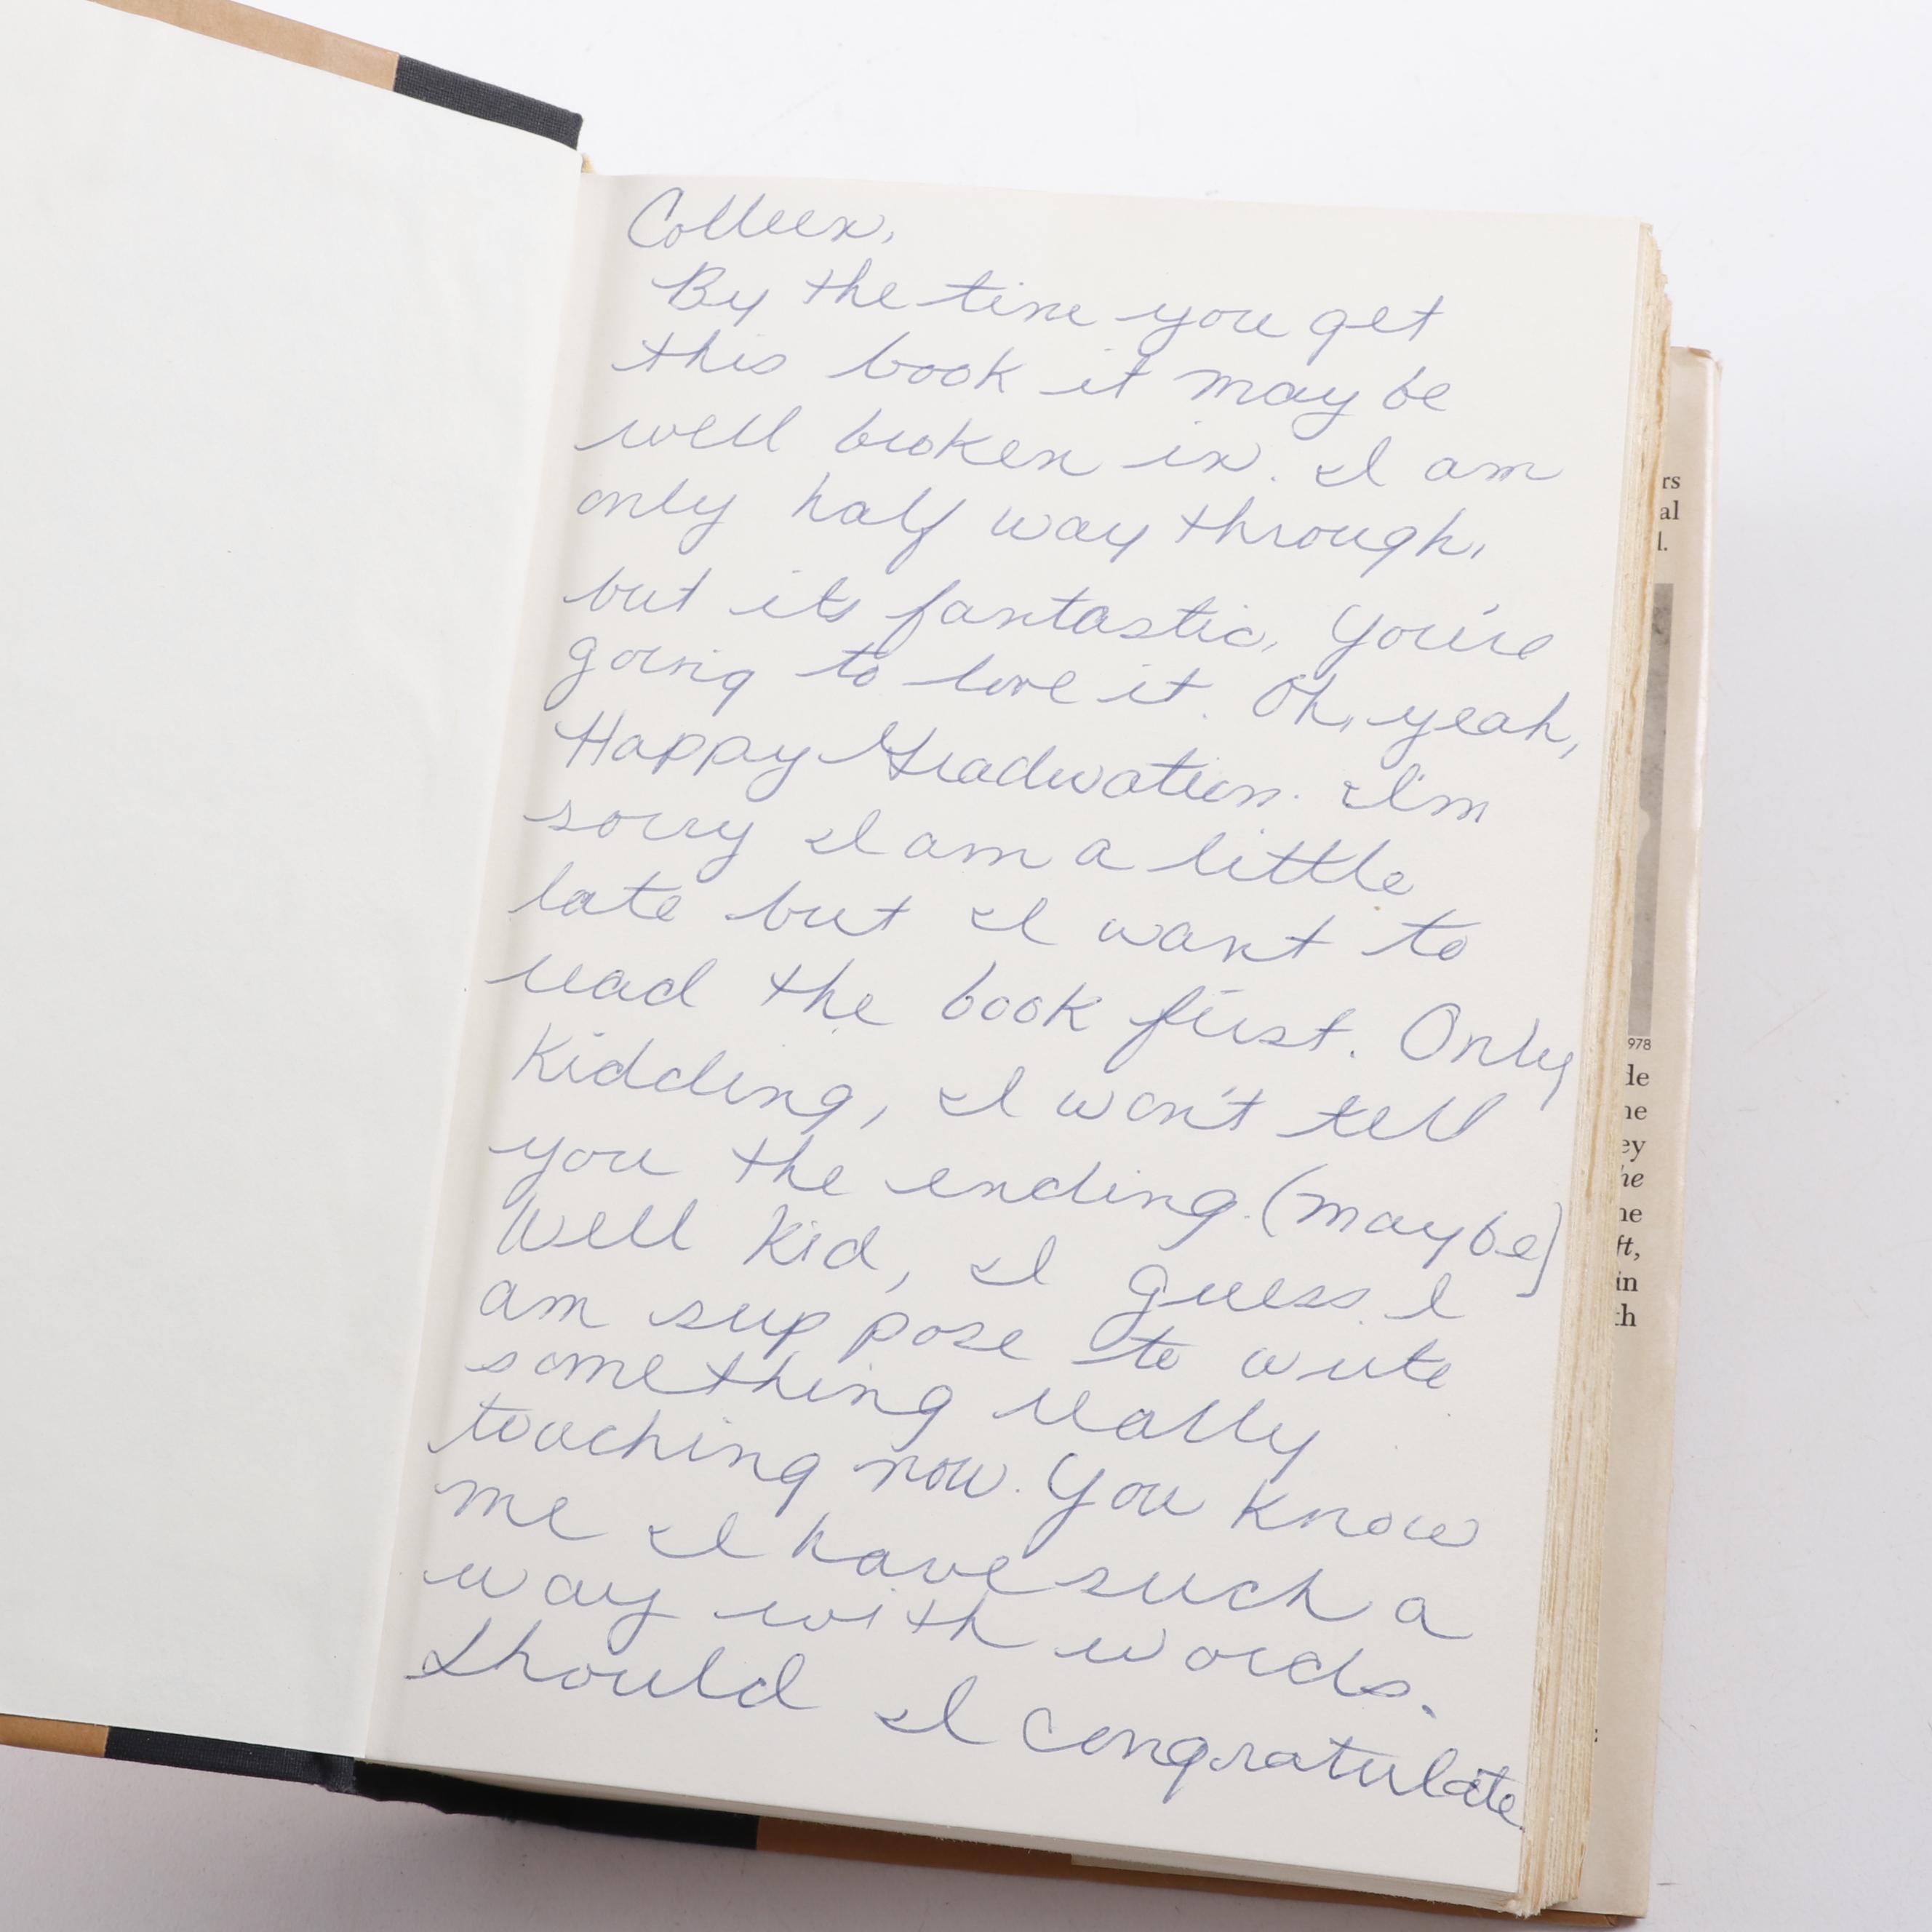 Colleen,
By the time you get
this book it may be
well broken in. I am
only half way through,
but its fantastic. You're
going to love it. Oh, yeah,
Happy Graduation. I'm
sorry I am a little
late but I want to
read the book first. Only
Kidding, I won't tell
you the ending. (maybe]
Well Kid, I guess I
am suppose to write
something really
touching now. You Know
me I have such a
way with words.
Should I Congratulate
rs
al
l.
978
de
ne
ey
he
ne
ft,
in
th